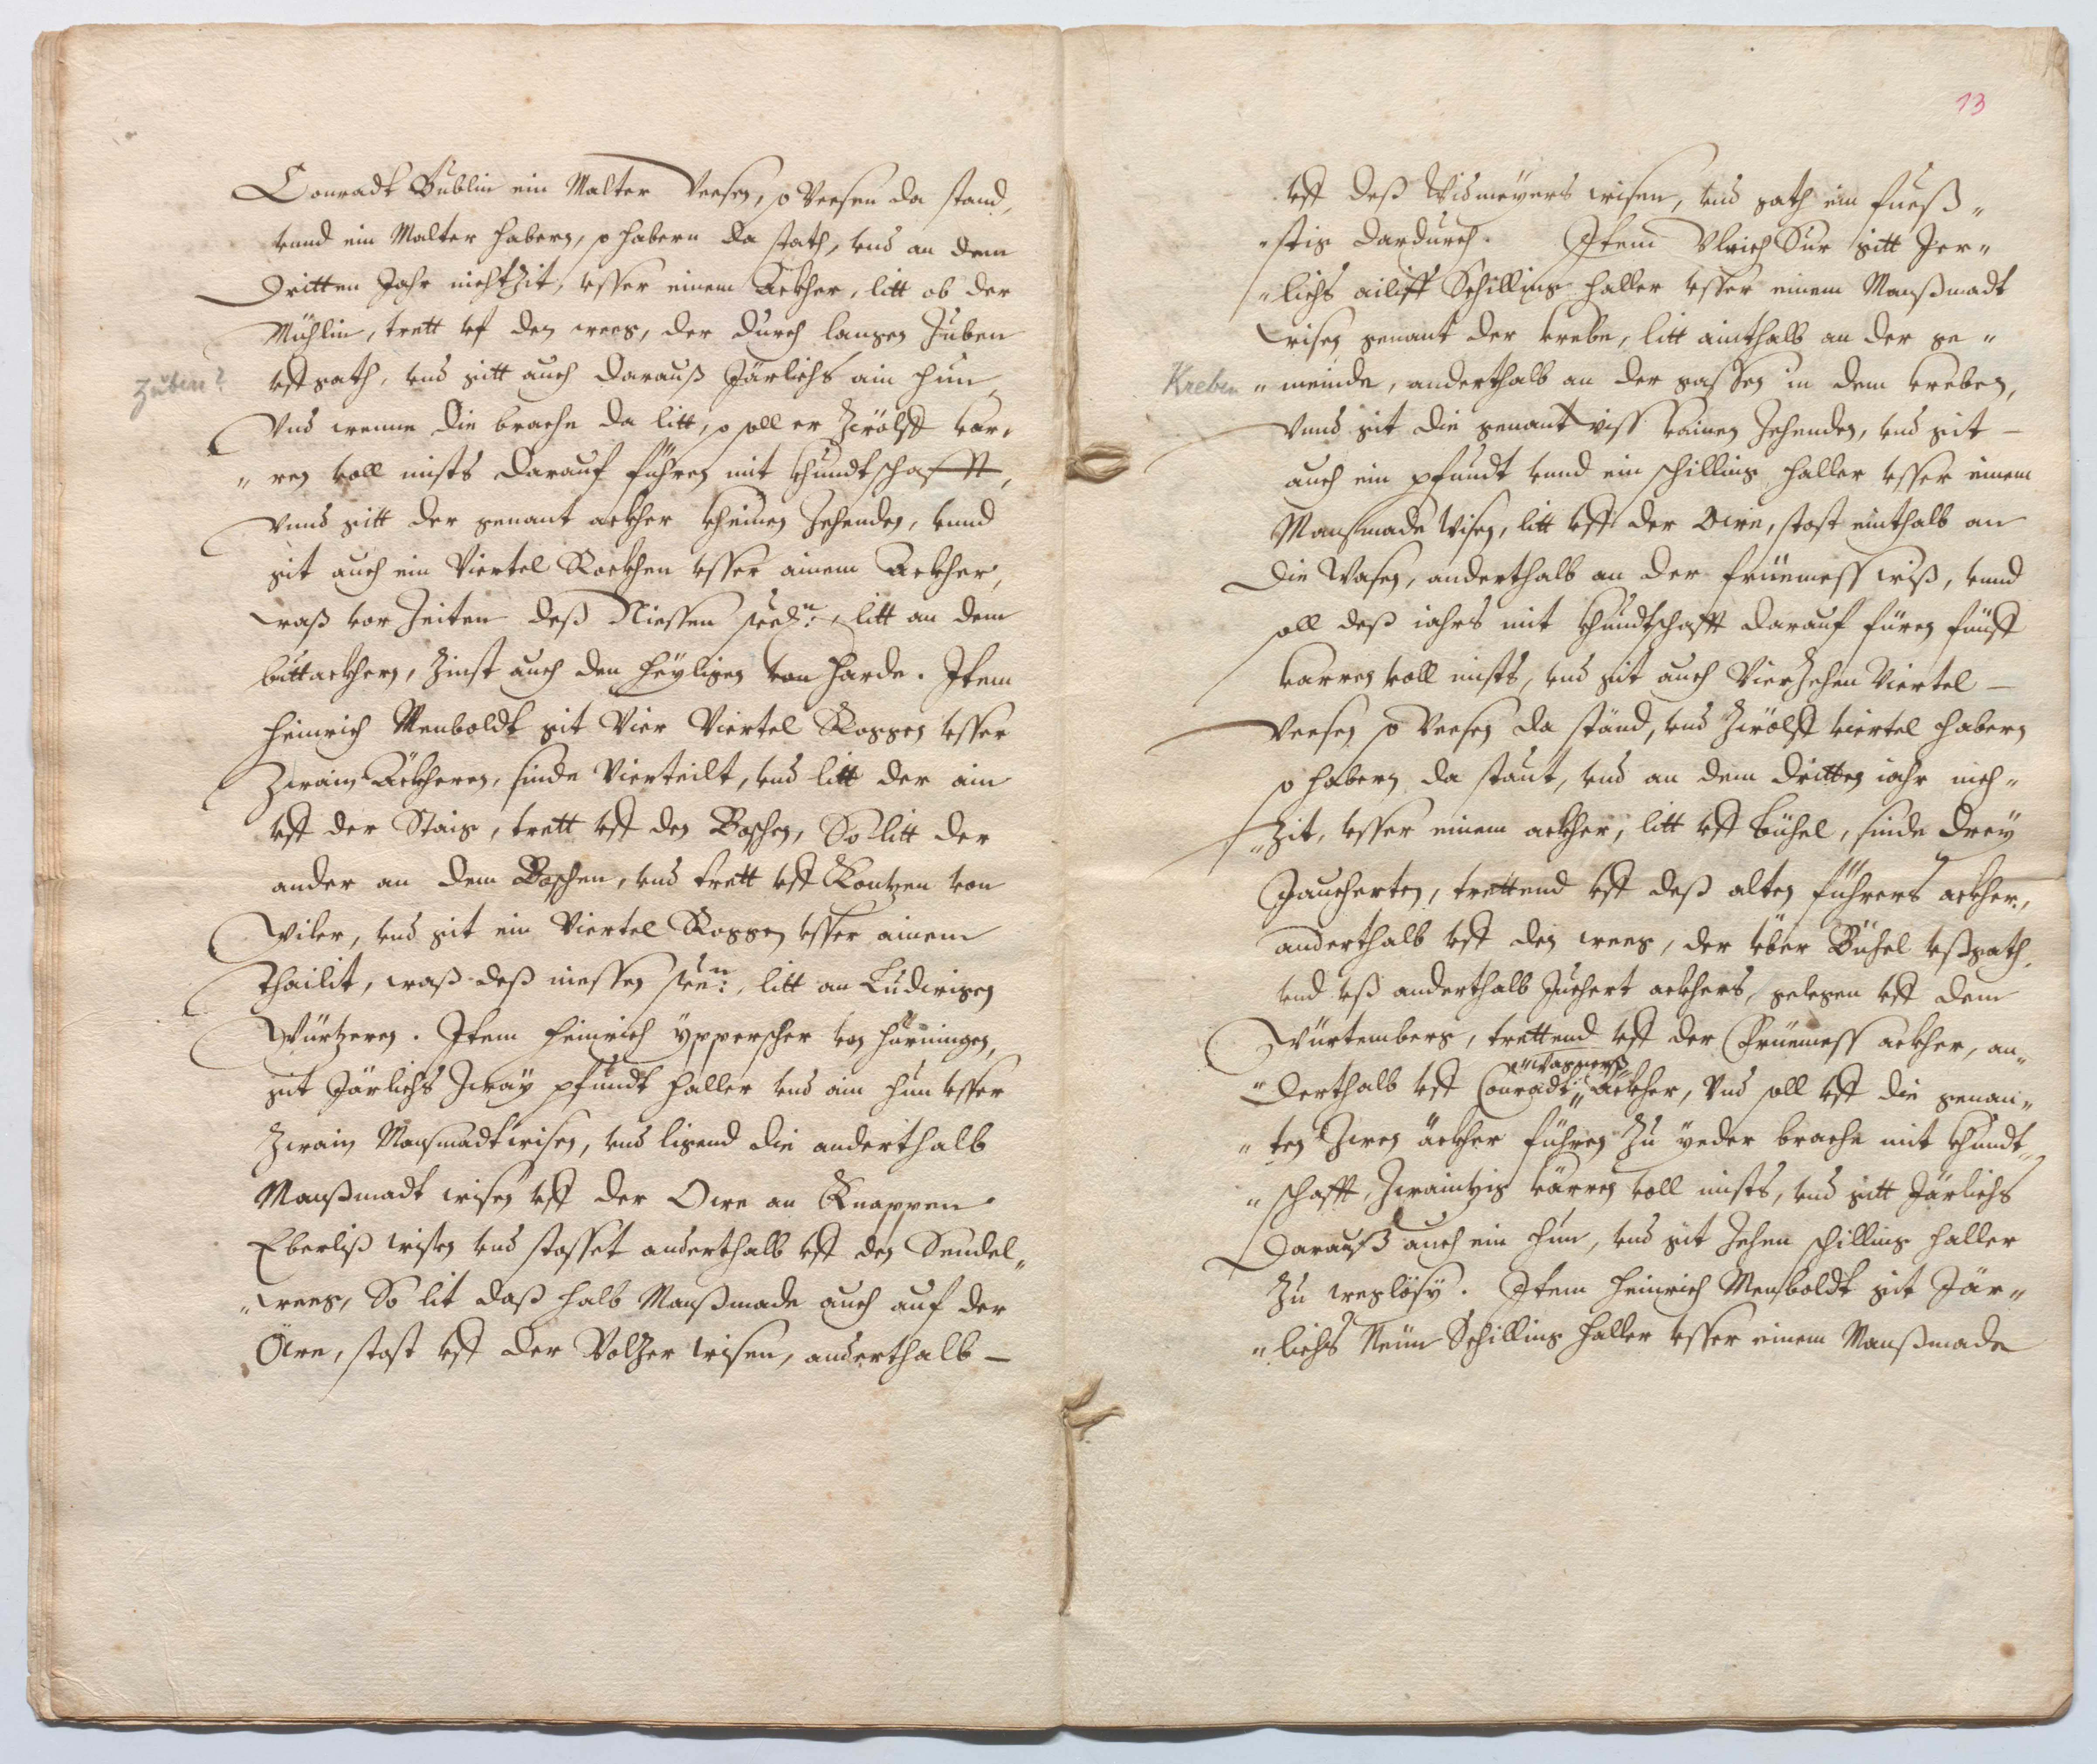 Conradt Bublin ein Malter Veesen, so Veesen da stand,
vnnd ein Malter habern, so habern da stath, vnd an dem
dritten Jahr nichtzit, vsser einem Ackher, litt ob der
Mühlin, trett vf den weeg, der durch langen Zuben
Zuben?
vffgath, vnd gitt auch darauß Järlichs ain hun
Vnd wenne die brache da litt, so soll er Zwölff kar„
„ren voll mists darauf führen mit khundtschafft,
Vnnd gitt der genant ackher kheinen Zehenden, vnnd
git auch ein Viertel Rockhen vsser ainem Ackher,
waß vor Zeiten deß Niessen litt an dem
büttackhern, Zinst auch den heyligen von Harde. Item
Heinrich Menboldt git Vier Viertel Roggen vsser
Zwain Äckheren, sinde Vierteilt, vnd litt der ain
vff der Staig, trett vff den Boschen, So litt der
ander an dem Boschen, vnd trett vff Kontzen von
Wiler, vnd git ein Viertel Roggen vsser ainem
thailit, waß deß niessen litt an Ludwigen
Würtzeren. Item Heinrich Ypperscher von hürningen,
git Järlichs Zwäy pfundt haller vnd ain hun vsser
Zwain Mansmadt wisen, vnd ligend die anderthalb
Manßmadt wisen vff der Owe an Knappen
Eberliß wisen vnd stosset anderthalb vff den Sendel„
„weeg, So lit daß halb Manßmade auch auf der
Owe, stost vff der Volzer wisen, anderthalb –
13
vff deß Widmeyers wisen, vnd gath ein fueß„
„stig dardurch. Item Vlrich Sur gitt Jer„
„lichs ailiff Schilling haller vsser einem Manßmadt
wisen genant der krebe, litt ainthalb an der ge„
Kreben
„meinde, anderthalb an der gassen in dem kreben,
Vnnd git die genant wiss kainen Zehenden, vnd git –
auch ein pfundt vnnd ein schilling haller vsser einem
Mansmade Wisen, litt vff der Owe, stost einthalb an
die Wasen, anderthalb an der früemess wiß, vnnd
soll deß iahrs mit khundtschafft darauf füren fünff
karren voll mists, vnd git auch Vierzehen Viertel –
Veesen so Veesen da ständ, vnd Zwölff viertel habern
so habern da staut, vnd an dem dritten iahr nich„
„Zit, vsser einem ackher, litt vff bühel, sinde drey
Jaucherten, trettend vff deß alten führers ackher,
anderthalb vff den weeg, der über Bühel vßgath,
vnd vß anderthalb Juchert ackhers, gelegen vff dem
Würtemberg, trettend vff der Früemess ackher, an„
„derthalb vff Conradt „Wagners„ Ackher, Vnd soll vff die genan„
„ten Zwen äckher führen Zu yeder brache mit khundt„
„schafft, Zwaintzig kärren voll mists, vnd gitt Järlichs
darauß auch ein hun, vnd git Zehen schilling haller
Zu weglösy. Item Heinrich Menboldt git Jär„
„lichs Neün Schilling haller vsser einem Manßmade